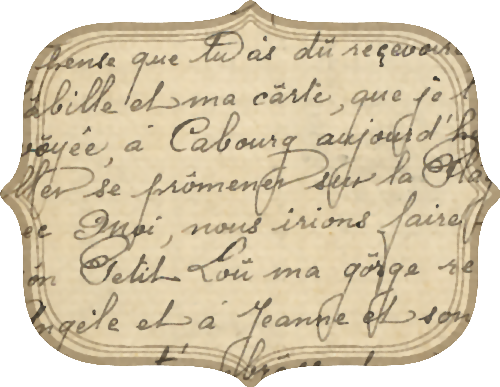 pense que tu as dû reçevoir
bille et ma cârte, que je t
voyée, à Cabourg aujourd'h
ller se prômener sur la Pla
ec Moi, nous irions faire
on Petit Loû ma gôrge re
Angèle et à Jeanne et son